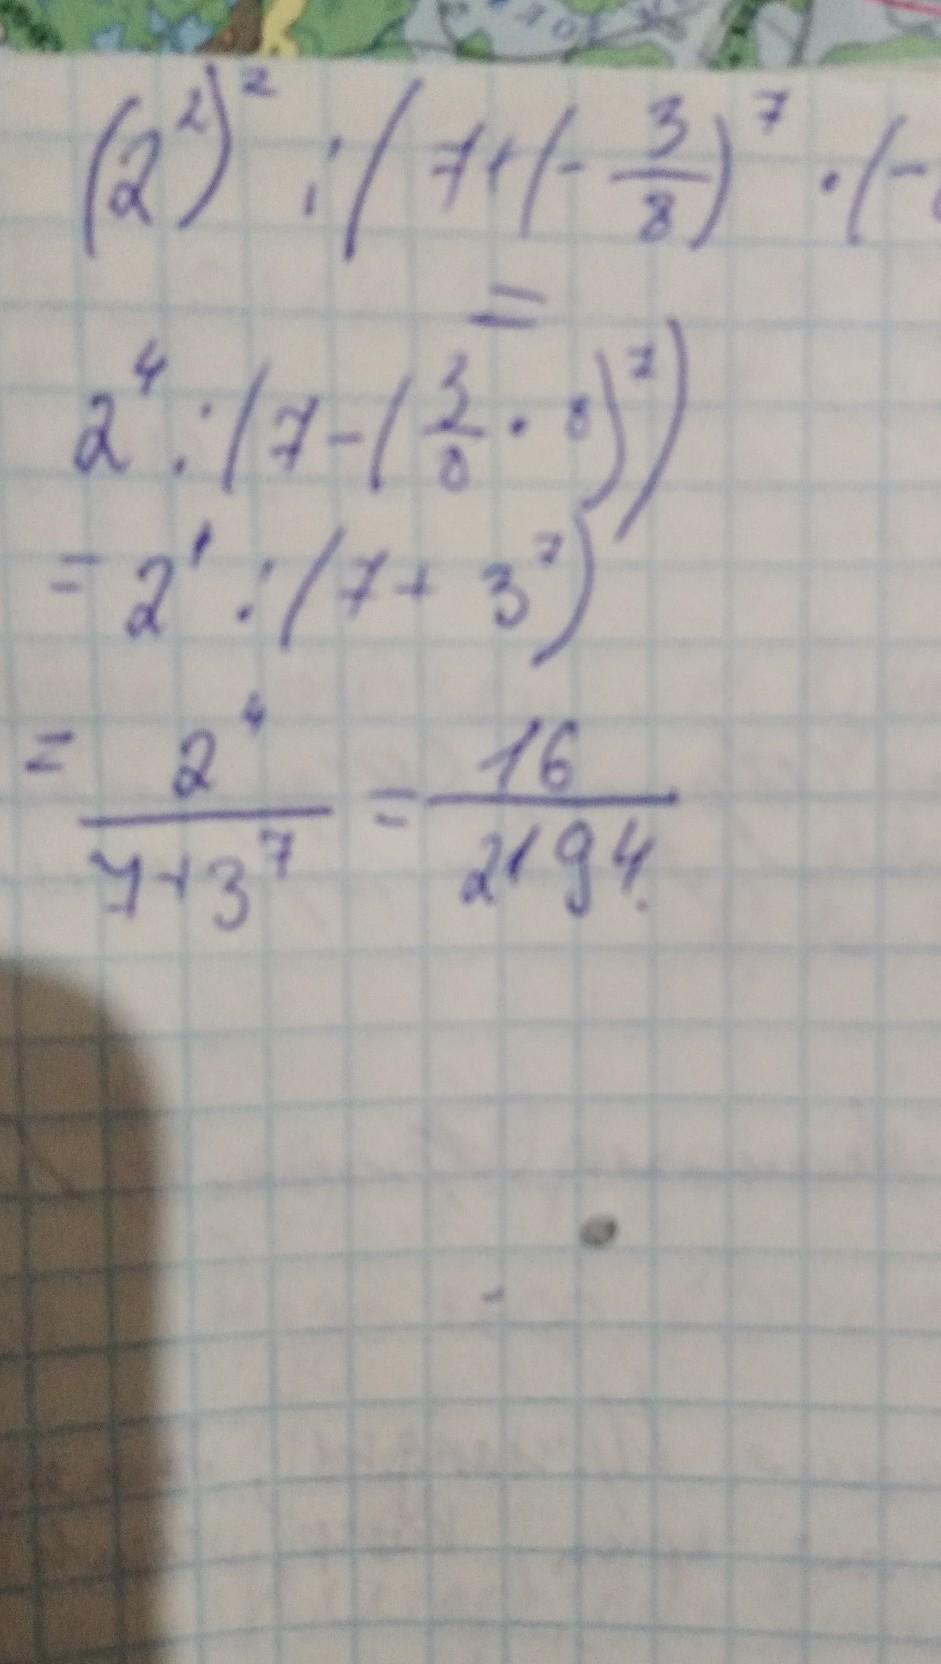 (2²)² : (7+(-3/8)⁷ · (-
=
2⁴ : (7-(3/8 · 8)⁷)
= 2⁴ : (7+ 3⁷)
= 2⁴/7+3⁷ = 16/2194.